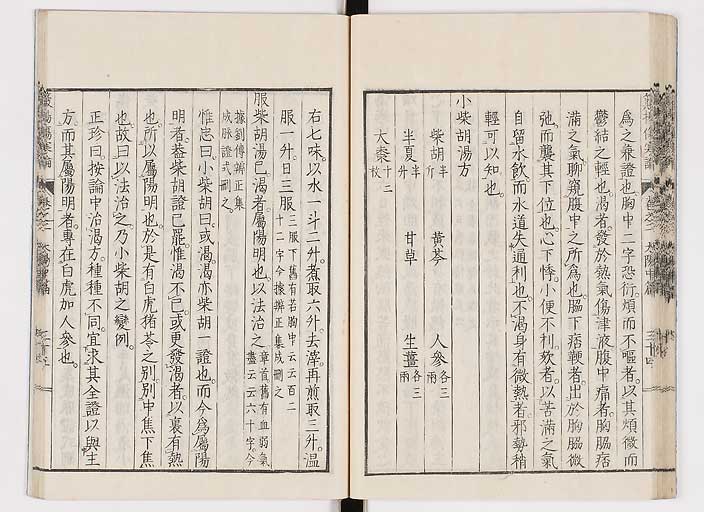 為之兼證也胸中二字恐衍煩而不嘔者以其煩微而
鬱結之輕也渴者發於熱氣傷津液腹中痛者胸脇痞
滿之氣聊窺腹中之所為也脇下痞鞕者出於胸脇微
弛而襲其下位也心下悸小便不利欬者以苦滿之氣
自留水飲而水道失通利也不渴身有微熱者邪勢稍
輕可以知也
小柴胡湯方
柴胡半斤 黃芩 人參各三兩
半夏半升 甘草 生薑各三兩
大棗十二枚
右七味以水一斗二升煮取六升去滓再煎取三升溫
服一升日三服三服下舊有若胸中云云百二十二字今據辨正集成刪之
服柴胡湯已渴者屬陽明也以法治之章首舊有血弱氣盡云云六十字今
據劉傳辨正集成脉證式刪之
惟忠曰小柴胡曰或渴渴亦柴胡一證也而今為屬陽
明者葢柴胡證已罷惟渴不已或更發渴者以裏有熱
也所以屬陽明也於是有白虎猪苓之別別中焦下焦
也故曰以法治之乃小柴胡之變例
正珍曰按論中治渴方種種不同宜求其全證以與主
方而其屬陽明者專在白虎加人參也